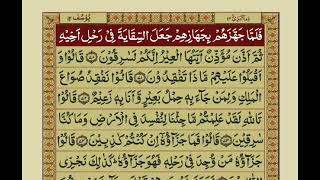 وَمَآ اُبَرِّئُ ١٣ يُوْسُف ١٢
فَلَمَّا جَهَّزَهُمْ بِجَهَازِهِمْ جَعَلَ السِّقَايَةَ فِيْ رَحْلِ اَخِيْهِ
ثُمَّ اَذَّنَ مُؤَذِّنٌ اَيَّتُهَا الْعِيْرُ اِنَّكُمْ لَسٰرِقُوْنَ ﴿۷۰﴾ قَالُوْا وَ
اَقْبَلُوْا عَلَيْهِمْ مَّاذَا تَفْقِدُوْنَ ﴿۷۱﴾ قَالُوْا نَفْقِدُ صُوَاعَ
الْمَلِكِ وَلِمَنْ جَآءَ بِهٖ حِمْلُ بَعِيْرٍ وَّاَنَا بِهٖ زَعِيْمٌ ﴿۷۲﴾ قَالُوْا
تَاللّٰهِ لَقَدْ عَلِمْتُمْ مَّا جِئْنَا لِنُفْسِدَ فِي الْاَرْضِ وَمَا كُنَّا
سٰرِقِيْنَ ﴿۷۳﴾ قَالُوْا فَمَا جَزَآؤُهٗۤ اِنْ كُنْتُمْ كٰذِبِيْنَ ﴿۷۴﴾ قَالُوْا
جَزَآؤُهٗ مَنْ وُّجِدَ فِيْ رَحْلِهٖ فَهُوَ جَزَآؤُهٗ كَذٰلِكَ نَجْزِي